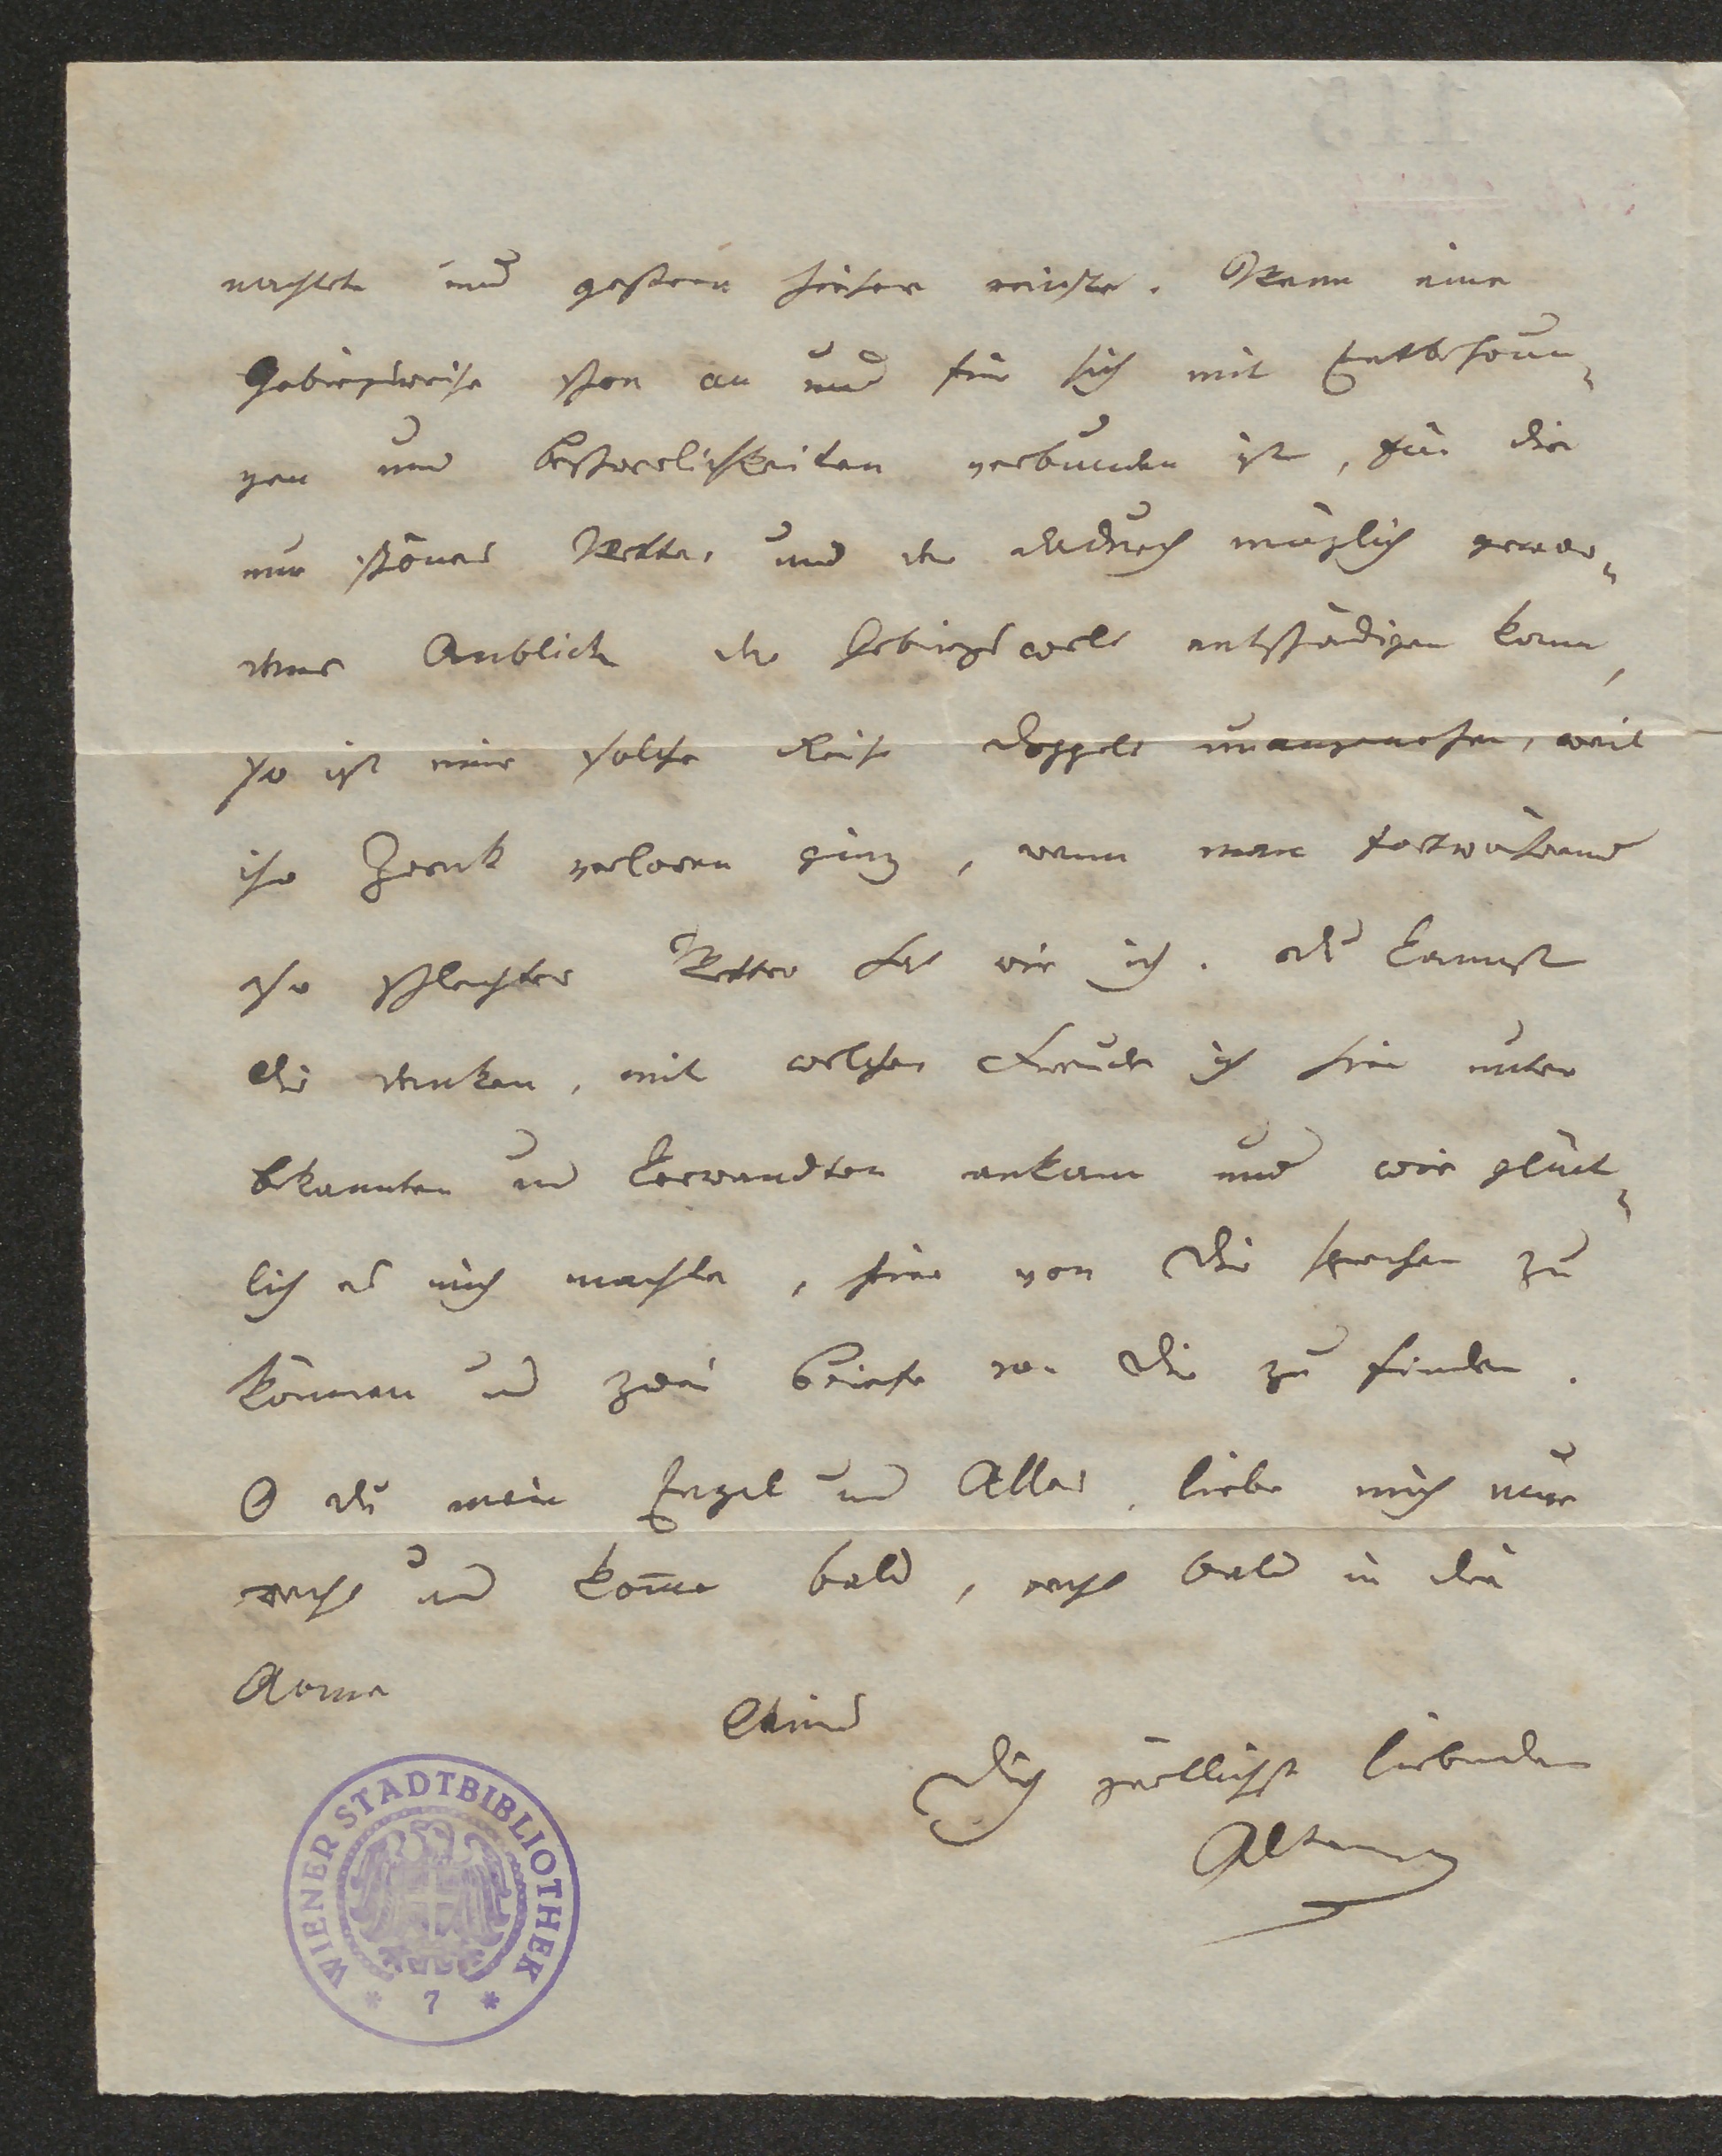 nachtete und gestern hieher reiste. Wenn eine
Gebirgsreise schon an und für sich mit Entbehrun-
gen und Beschwerlichkeiten verbunden ist, für die
nur schönes Wetter und der dadurch möglich gewor-
dene Anblick der Gebirgswelt entschädigen kann,
so ist eine solche Reise doppelt unangenehm, weil
ihr Zweck verloren ging, wenn man fortwährend
so schlechtes Wetter hat wie ich. Du kannst
Dir denken, mit welcher Freude ich hier unter
Bekannten und Verwandten ankam und wie glück-
lich es mich machte, hier von Dir sprechen zu
können und zwei Briefe von Dir zu finden.
O du mein Engel und Alles, liebe mich nur
recht und kom̅e bald, recht bald in die
Arme
Deines
Dich zärtlichst liebenden
WIENER STADTBIBLIOTHEK
* 7 *